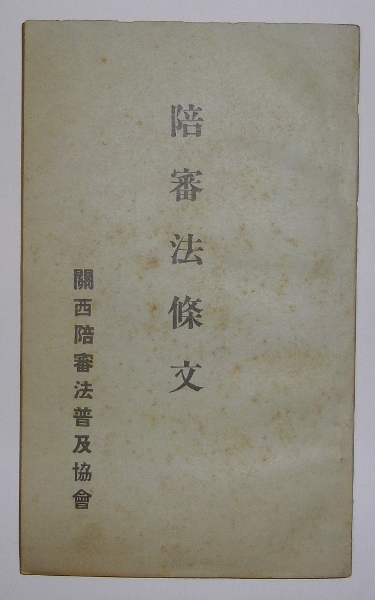 陪審法條文
關西陪審法普及協會